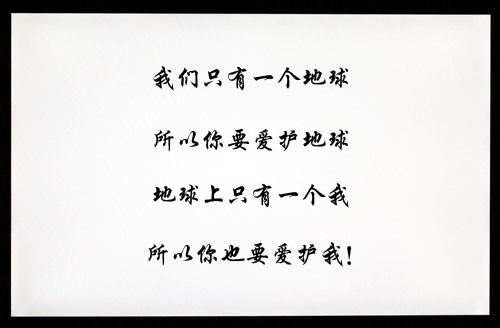 我们只有一个地球
所以你要爱护地球
地球上只有一个我
所以你也要爱护我!